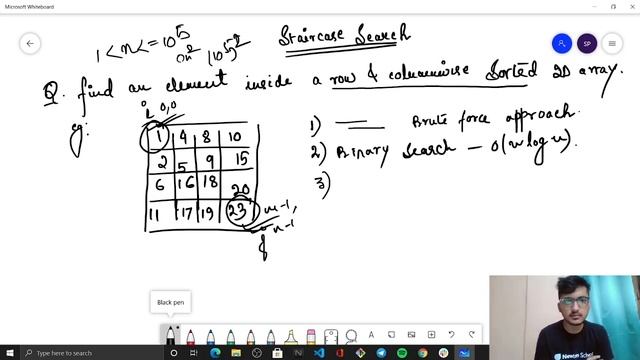 Microsoft Whiteboard
1 < n <= 10^5
on^2 (10^5)^2
Staircase Search
SP
Q. find an element inside a row & columnwise Sorted 2D array.
eg:
i 0,0
1 4 8 10
2 5 9 15
6 16 18 20
11 17 19 23
m-1,
n-1
1) Brute force approach.
2) Binary Search - O(n log n).
3)
Black pen
Type here to search
Newton School